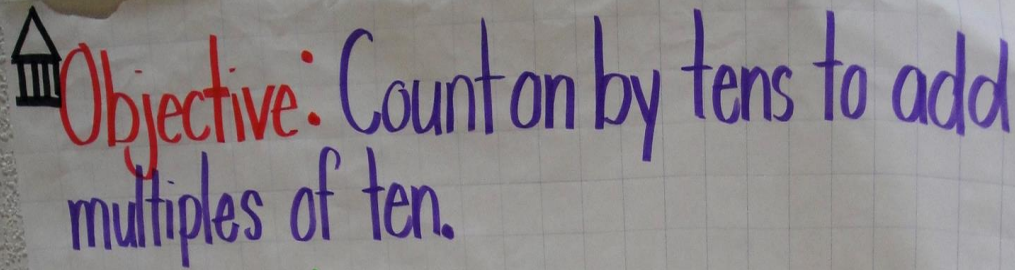 Objective: Count on by tens to add
multiples of ten.